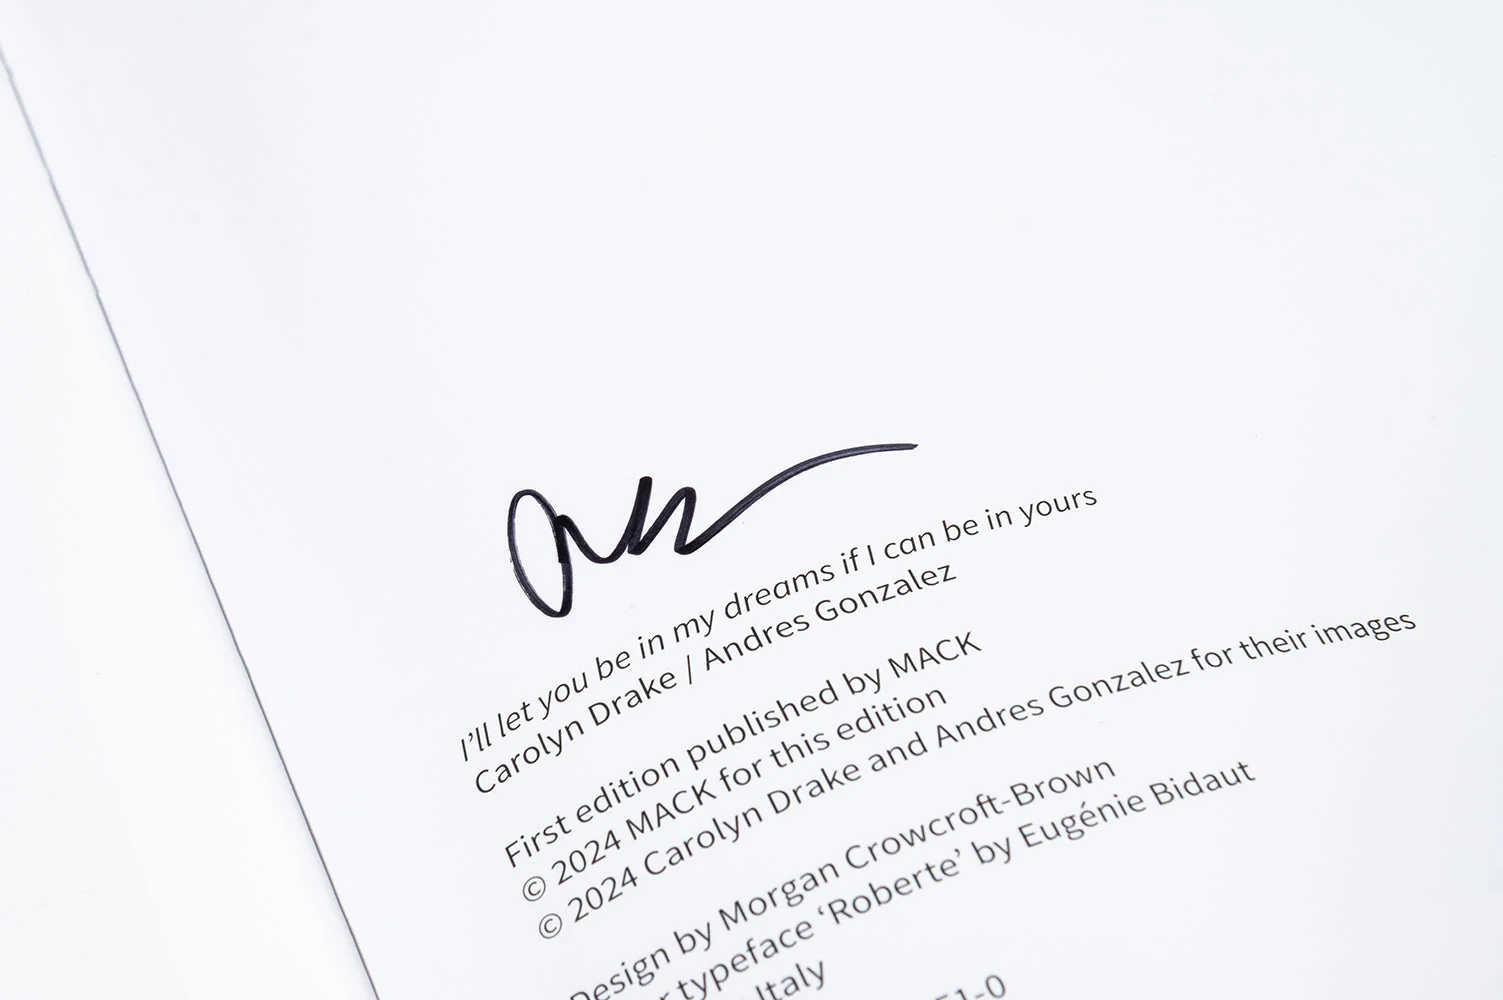 I’ll let you be in my dreams if I can be in yours
Carolyn Drake / Andres Gonzalez
First edition published by MACK
© 2024 MACK for this edition
© 2024 Carolyn Drake and Andres Gonzalez for their images
Design by Morgan Crowcroft-Brown
typeface ‘Roberte’ by Eugénie Bidaut
Italy
51-0